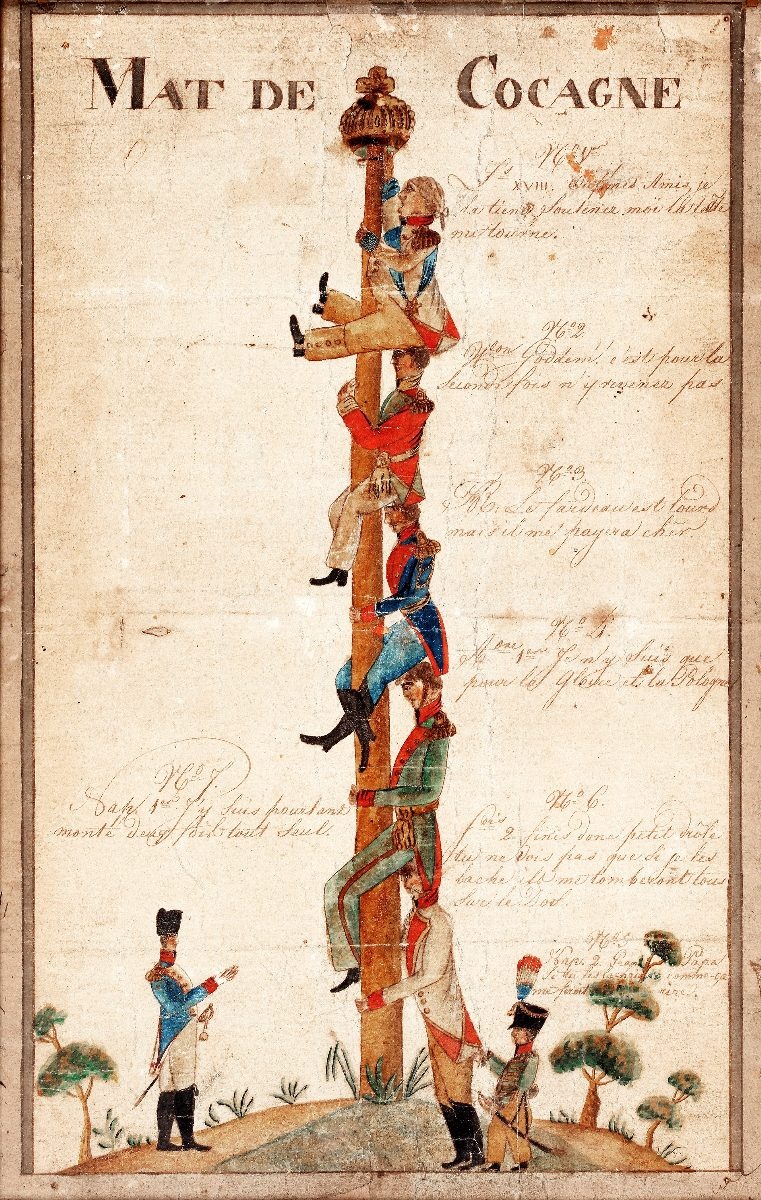 MAT DE COCAGNE
No 1er
XVIII. Amis, je
la tiens, soutenez moi la tête
me tourne.
No 2
Goddem! c'est pour la
seconde fois n'y revenez pas
No 3
Le fardeau est lourd
mais il me payera cher
No 4.
1er Je n'y suis que
pour la Gloire et la Pologne
No 7.
Nap. 1er J'y suis pourtant
monté deux fois tout seul.
No 6.
fçois 2 finis donc petit drôle
tu ne vois pas que si je les
lache ils me tomberont tous
sur le dos.
No 5
Nap. 2 Grand Papa